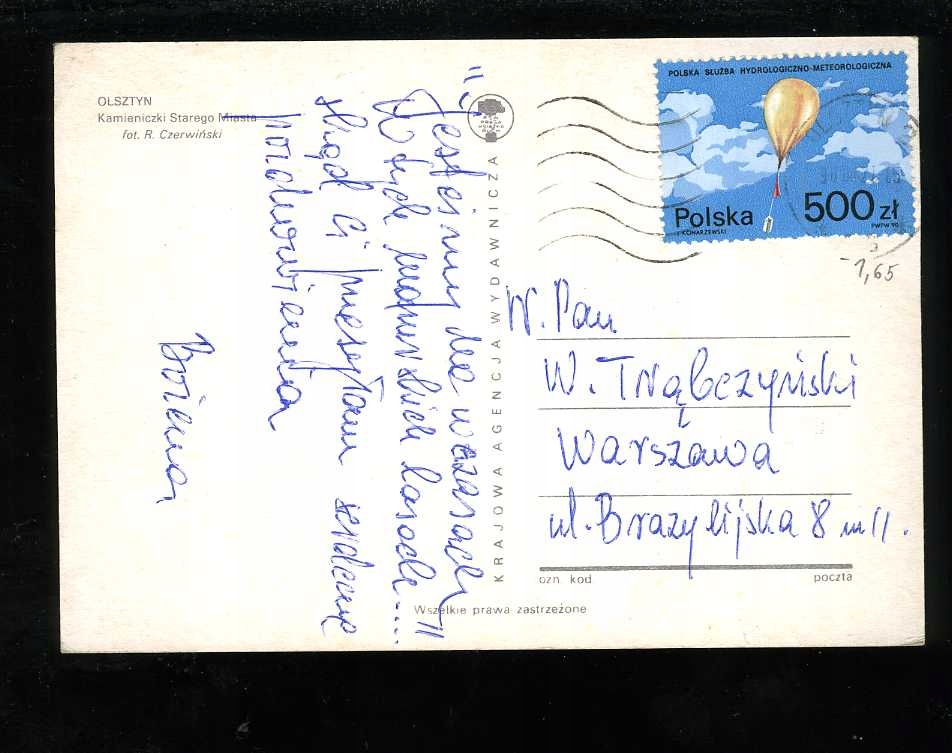 OLSZTYN
Kamieniczki Starego Miasta
fot. R. Czerwiński
"Jesteśmy na wczasach"
W tych mazurskich lasach....
skąd Ci przesyłam serdeczne
pozdrowienia
Bożena
KRAJOWA AGENCJA WYDAWNICZA
POLSKA SŁUŻBA HYDROLOGICZNO-METEOROLOGICZNA
Polska 500 zł
J. KONARZEWSKI PWPW 90
-1,65
W. Pan
W. Trąbczyński
Warszawa
ul. Brazylijska 8 m 11.
ozn. kod poczta
Wszelkie prawa zastrzeżone